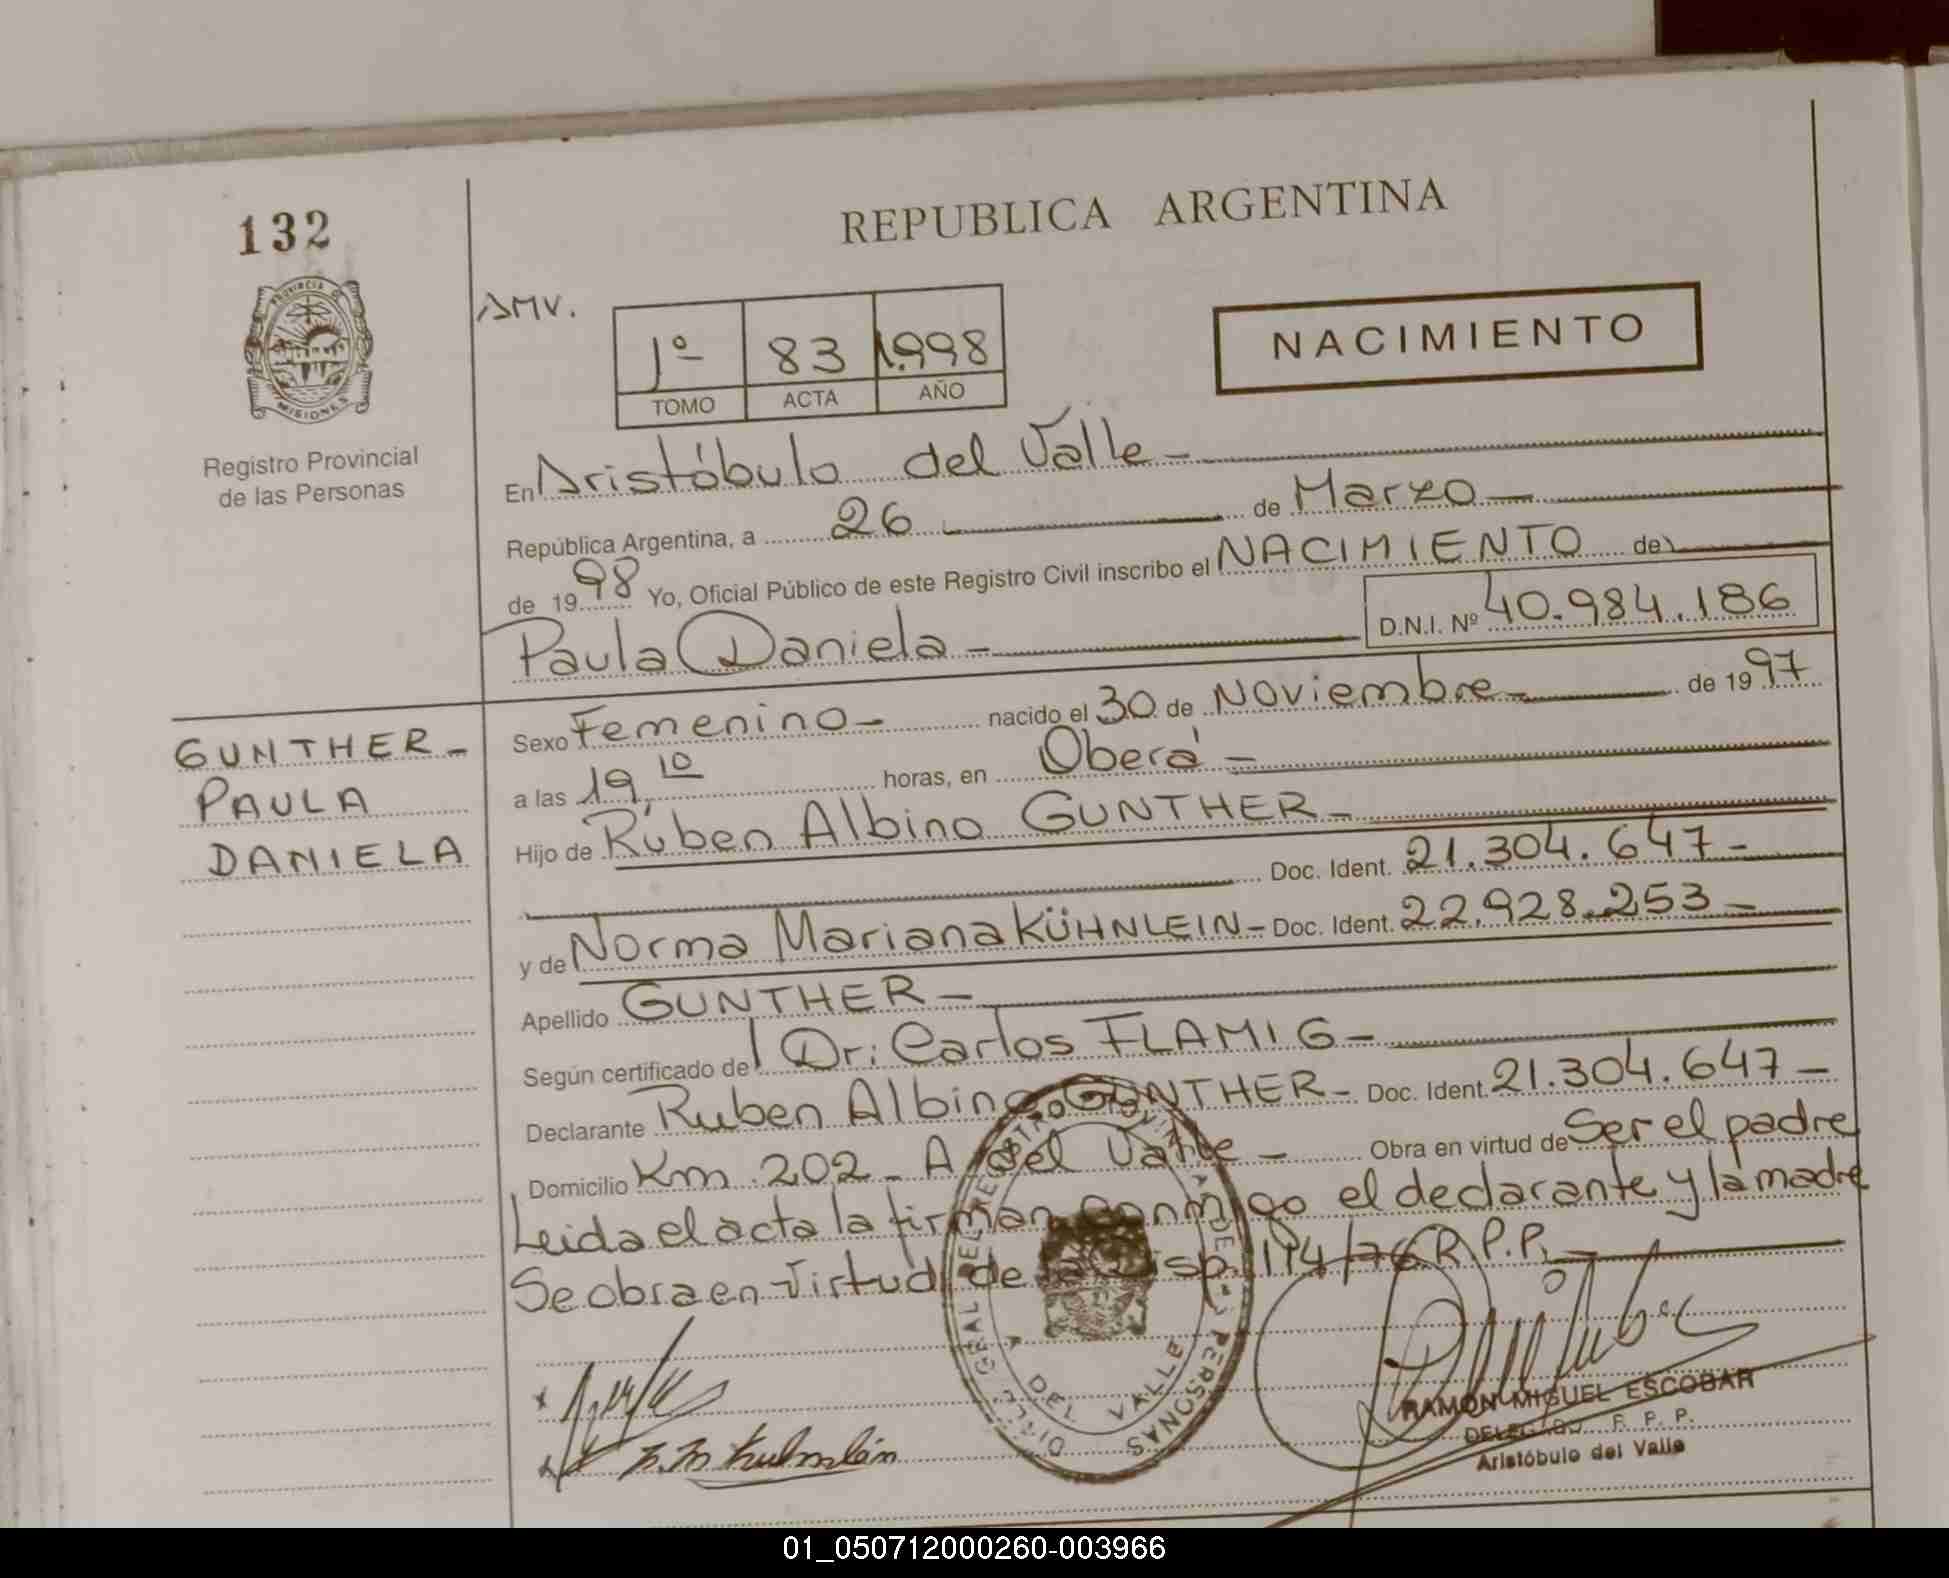 132
REPUBLICA ARGENTINA
PROVINCIA DE
MISIONES
Registro Provincial
de las Personas
AMV.
1º 83 1.998
TOMO ACTA AÑO
NACIMIENTO
En Aristóbulo del Valle -
República Argentina, a 26 de Marzo -
de 1998 Yo, Oficial Público de este Registro Civil inscribo el NACIMIENTO de
Paula Daniela - D.N.I. Nº 40.984.186
GUNTHER -
PAULA
DANIELA
Sexo Femenino - nacido el 30 de Noviembre - de 1997
a las 19,10 horas, en Oberá -
Hijo de Rúben Albino GUNTHER -
Doc. Ident. 21.304.647 -
y de Norma Mariana KÜHNLEIN - Doc. Ident. 22.928.253 -
Apellido GUNTHER -
Según certificado del Dr: Carlos FLAMIG -
Declarante Ruben Albino GUNTHER - Doc. Ident. 21.304.647 -
Domicilio Km 202 - A del Valle - Obra en virtud de Ser el padre
Leida el acta la firman conmigo el declarante y la madre
Se obra en virtud de la Disp. 114/76 R.P.P. -
DEL VALLE
RAMON MIGUEL ESCOBAR
DELEGADO R. P. P.
Aristóbulo del Valle
01_050712000260-003966